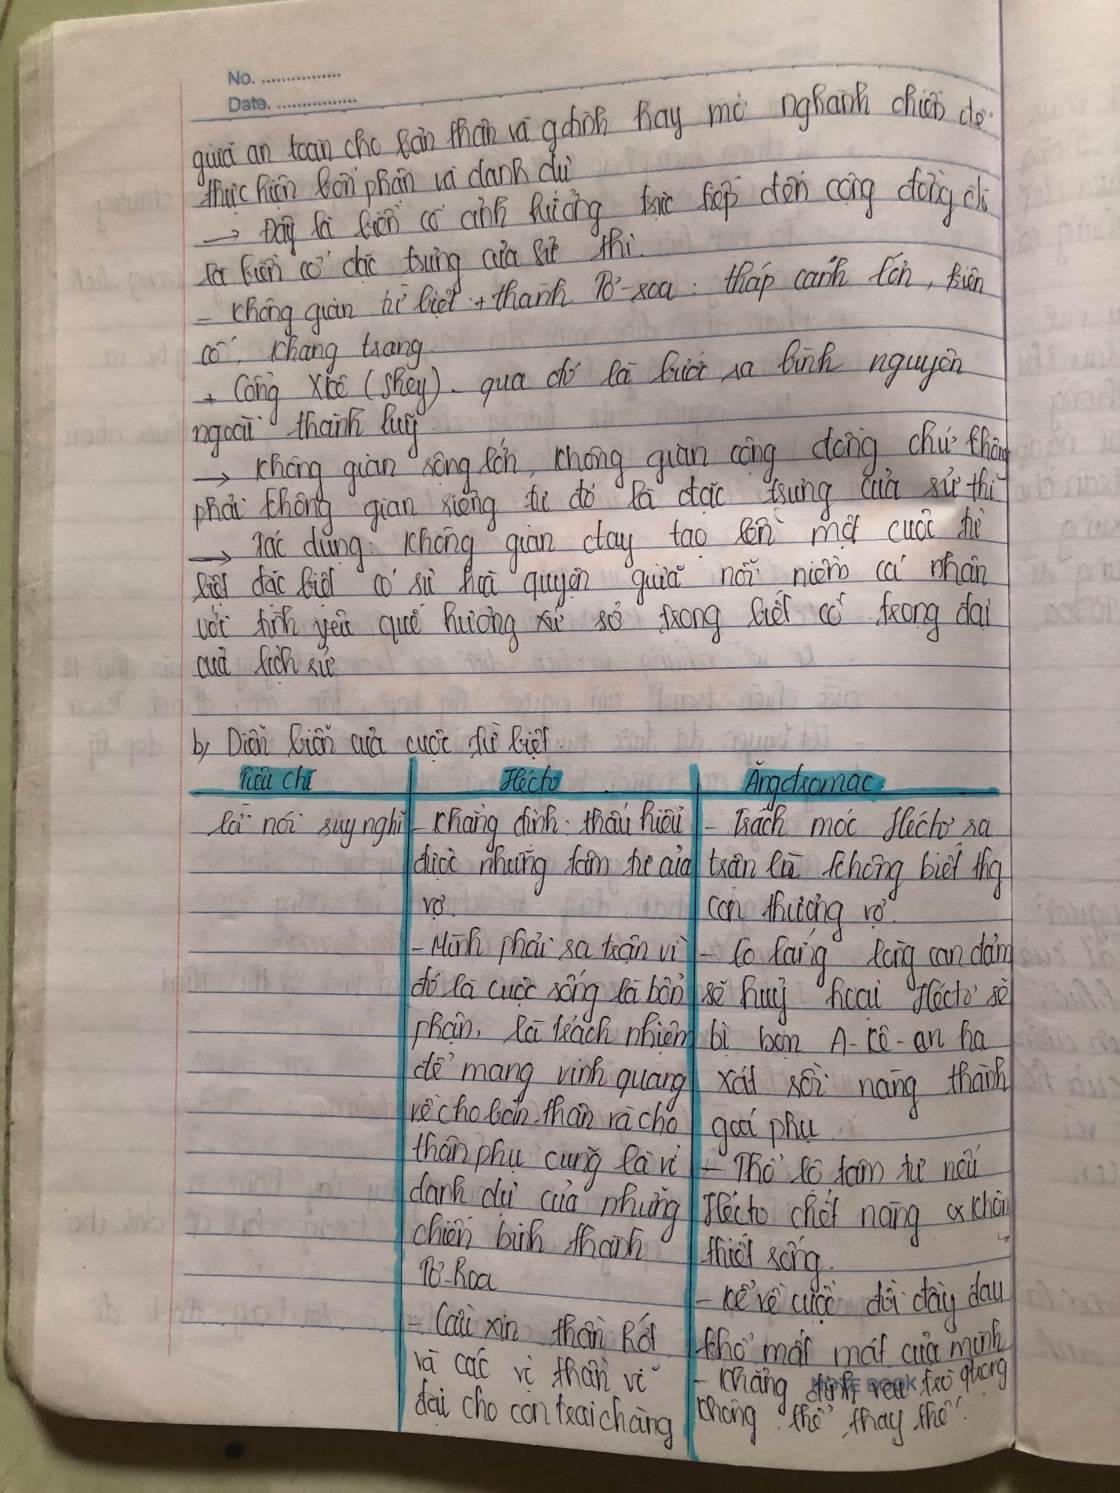 No. ................
Date. ................
giữa an toàn cho bản thân và gđình hay mở nghành chiến để
thực hiện bổn phận và danh dự
→ Đây là biến cố ảnh hưởng trực tiếp đến cộng đồng đó
là biến cố đặc trưng của sử thi.
- Không gian từ biệt: + thành Tơ-roa: tháp canh lớn, kiên
cố, khang trang.
+ Cổng Xkê (Skey). qua đó là bước ra bình nguyên
ngoài thành luỹ
→ Không gian rộng lớn, không gian cộng đồng chứ không
phải không gian riêng tư đó là đặc trưng của sử thi
→ Tác dụng: Không gian đay tạo lên một cuộc từ
biệt đặc biệt có sự hoà quyện giữa nỗi niềm cá nhân
với tình yêu quê hương xứ sở trong biết cố trọng đại
của lịch sử
b, Diễn biến của cuộc từ biệt
Tiêu chí Héctơ Ăngđromac
Lời nói suy nghĩ
- Khẳng định: thấu hiểu
được những tâm tư của
vợ.
- Mình phải ra trận vì
đó là cuộc sống là bổn
phận, là trách nhiệm
để mang vinh quang
về cho bản thân và cho
thân phụ cũng là vì
danh dự của những
chiến binh thành
Tơ-Roa
- Cầu xin thần Rớt
và các vị thần vĩ
đại cho con trai chàng
- Trách móc Héctơ ra
trận là không biết thg
con thương vợ.
- Lo lắng lòng can đảm
sẽ huỷ hoại Héctơ sẽ
bị bọn A-kê-an hạ
xát rồi nàng thành
goá phụ
- Thổ lộ tâm tư nếu
Héctơ chết nàng cx khôn
thiết sống.
- Kể về cuộc đời đầy đau
khổ mất mát của mình
- Khẳng định vai trò qtrọng
không thể thay thế.
NOTE BOOK